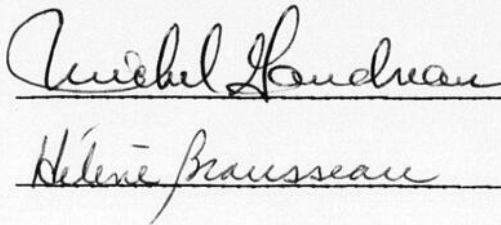 Michel Gaudreau
Hélène Brousseau